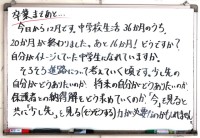 卒業まであと…
今日から12月です。中学校生活36か月のうち、
20か月が終わりました。あと16か月!どうですか?
自分がイメージしていた中学生になれていますか。
そろそろ進路について考えていく頃です。少し先の
自分がどうありたいのか、将来の自分がどうありたいのか
保護者との納得解をどう求めていくのか。「今」を見ると
共に「少し先」も見る力が必要なのかもしれません。